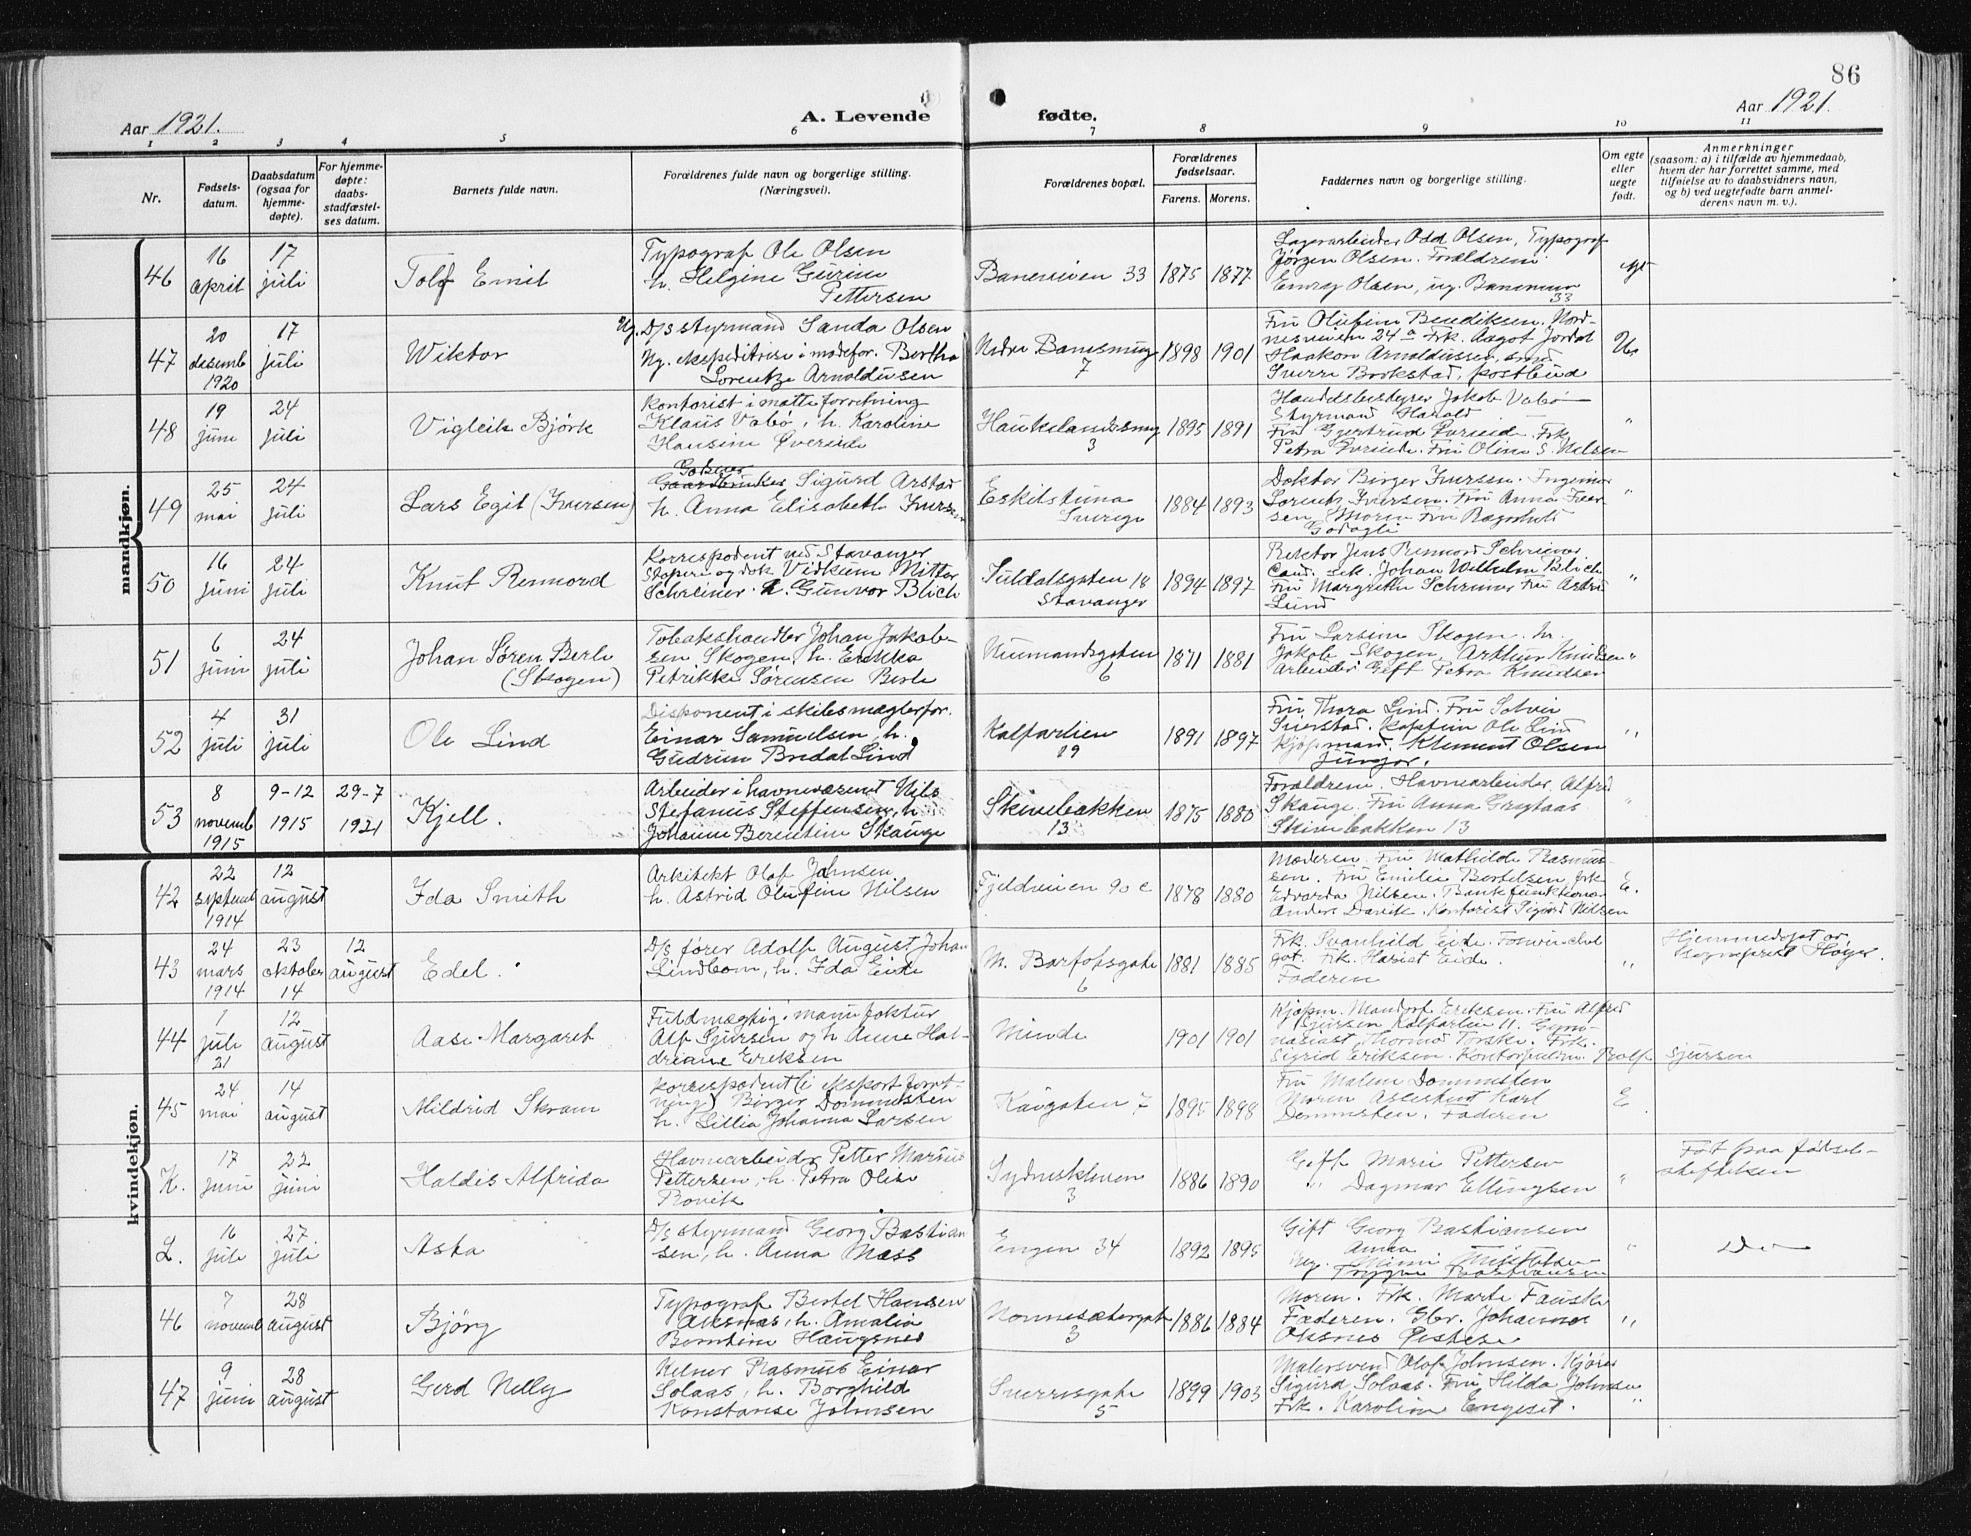 86
Aar 1921.
A. Levende
fødte.
Aar 1921.
1 2 3 4 5 6 7 8 9 10 11
Nr.
Fødsels-
datum.
Daabsdatum
(ogsaa for
hjemme-
døpte).
For hjemme-
døpte:
daabs-
stadfæstel-
ses datum.
Barnets fulde navn.
Forældrenes fulde navn og borgerlige stilling.
(Næringsvei).
Forældrenes bopæl.
Forældrenes
fødselsaar.
Farens. Morens.
Faddernes navn og borgerlige stilling.
Om egte
eller
uegte
født.
Anmerkninger
(saasom: a) i tilfælde av hjemmedaab,
hvem der har forrettet samme, med
tilføielse av to daabsvidners navn,
og b) ved uegtefødte barn anmel-
derens navn m. v.).
mandkjøn.
46
16
april
17
juli
Tolf Emil
Typograf Ole Olsen
h. Helgine Gurine
Pettersen
Baneveien 33
1875 1877
Lagerarbeider Odd Olsen, Typograf
Jørgen Olsen. Forældrene
Olsen, ug. Baneveien
33
47
20
desemb
1920
17
juli
Wiktor
Ug. D/s styrmand Sanda Olsen
Ug. ekspeditrise i modefor. Bertha
Lorentze Arnoldussen
Nedre Banesmug
7
1898 1901
Fru Olufine Bendiksen. Nord-
nesveien 24 a Frk. Aagot Jordal
Haakon Arnoldussen, smed
Sverre Brokstad, postbud
Ue
48
19
juni
24
juli
Vigleik Bjørk
Kontorist i matteforretning
Klaus Vabø, h. Karoline
Hansine Øvereide
Haukelandssmug
3
1895 1891
Handelsbestyrer Jakob Vabø
Styrmand Harald
Fru Gjertrud Øvreide. Frk
Petra Øvreide. Fru Oline S. Nilsen
"
49
25
mai
24
juli
Lars Egil (Iversen)
Sigurd Arstad
h. Anna Elisabeth Iversen
Eskilstuna
Sverige
1884 1893
Doktor Birger Iversen. Ingeniør
Lorentz Iversen. Fru Anna Iver-
sen, Moren Fru Ragnhild
"
50
16
juni
24
juli
Knut Rennord
Korrespodent ved Stavanger
Støperi og dok Vidkunn Nitter
Schreiner h. Gunvor Blich
Suldalsgaten 18
Stavanger
1894 1897
Rektor Jens Rennord Schreiner
Cand. Johan Wilhelm Blich
Fru Margrethe Schreiner Fru Astri
Lund
"
51
6
juni
24
juli
Johan Søren Berle
(Skogen)
Tobakshandler Johan Jakob-
sen Skogen, h. Erikka
Petrikke Sørensen Berle
Neumandsgaten
6
1871 1881
Fru Larsine Skogen. hr.
Jakob Skogen, Arthur Knudsen
Arbeider Gift Petra Knudsen
"
52
4
juli
31
juli
Ole Lind
Disponent i skibsmæglerfor.
Einar Samuelsen, h.
Gudrun Bredal Lind
Kalfarlien
19
1891 1897
Fru Thora Lind. Fru Solvei
Sverstad. Kaptein Ole Lind
Kjøpmand. Klement Olsen
Junger.
"
53
8
novemb
1915
9-12
1915
29-7
1921
Kjell.
Arbeider i havnevæsenet Nils
Stefanus Steffensen, h.
Johanne Berentine Skauge
Skivebakken
13
1875 1880
Forældrene. Havnearbeider Alfred
Skauge. Fru Anna
Skivebakken 13
"
kvindekjøn.
42
22
septemb
1914
12
august
Ida Smith
Arkitekt Olaf Johnsen
h. Astrid Olufine Nilsen
Fjeldveien 90 c
1878 1880
Moderen. Fru Mathilde Rasmus-
sen. Fru Emilie Bertelsen frk
Edvarda Nilsen. Bankfunktionær
Anders Davik. Kontorist Sigurd Nilsen
E.
43
24
mars
1914
23
oktober
14
12
august
Edel.
D/s fører Adolf August Johan
Lindbom, h. Ida Eide
M. Barfotsgate
6
1881 1885
Frk. Svanhild Eide.
Frk. Hariet Eide.
Faderen
"
Hjemmedøpt av
sogneprest Høyer.
44
1
juli
21
12
august
Aase Margaret
Fuldmægtig i manufaktur
Alf Sjursen og h Anne Hal-
driane Eriksen
Minde
1901 1901
Kjøpm. Mandorf Eriksen. Fru Alfred
Sjursen Kalfarlien 11. Gym-
nasiast Thormod Torske. Frk.
Sigrid Eriksen. Rolf Sjursen
45
24
mai
14
august
Mildrid Skram
Korrespodent i eksportforret-
ning Birger Dommesten
h. Lillia Johanna Larsen
Kaigaten 7
1895 1898
Fru Malene Dommesten
Moren Karl
Dommesten. Faderen
E
K.
17
juni
22
juni
Haldis Alfrida
Havnearbeider Petter Marius
Pettersen, h. Petra Oline
Rovik
Sydneskleven
3
1886 1890
Gift Marie Pettersen
" Dagmar Ellingsen
"
Føt paa fødsels-
stiftelsen
L.
16
juli
27
juli
Asta
D/s styrmand Georg Bastian-
sen, h. Anna Næss
Engen 34
1892 1895
Gift Georg Bastiansen
Anna
Ug. Minni
Trygve Bastiansen
"
Do
46
7
novemb
28
august
Bjørg
Typograf Bertel Hansen
Aksnas, h. Amalia
Berntine Haugsnes
Nonnesætergate
3
1886 1884
Moren. Frk. Marta Fauske
Faderen. Gbr. Johannes
Oksnes Øistese
"
47
9
juni
28
august
Gerd Nelly
Kelner Rasmus Einar
Solaas, h. Borghild
Konstanse Johnsen
Sverresgate
5
1899 1903
Malersvend Olaf Johnsen. Kjører
Sigurd Solaas. Fru Hilda Johnsen
Frk. Karoline Engeset.
"